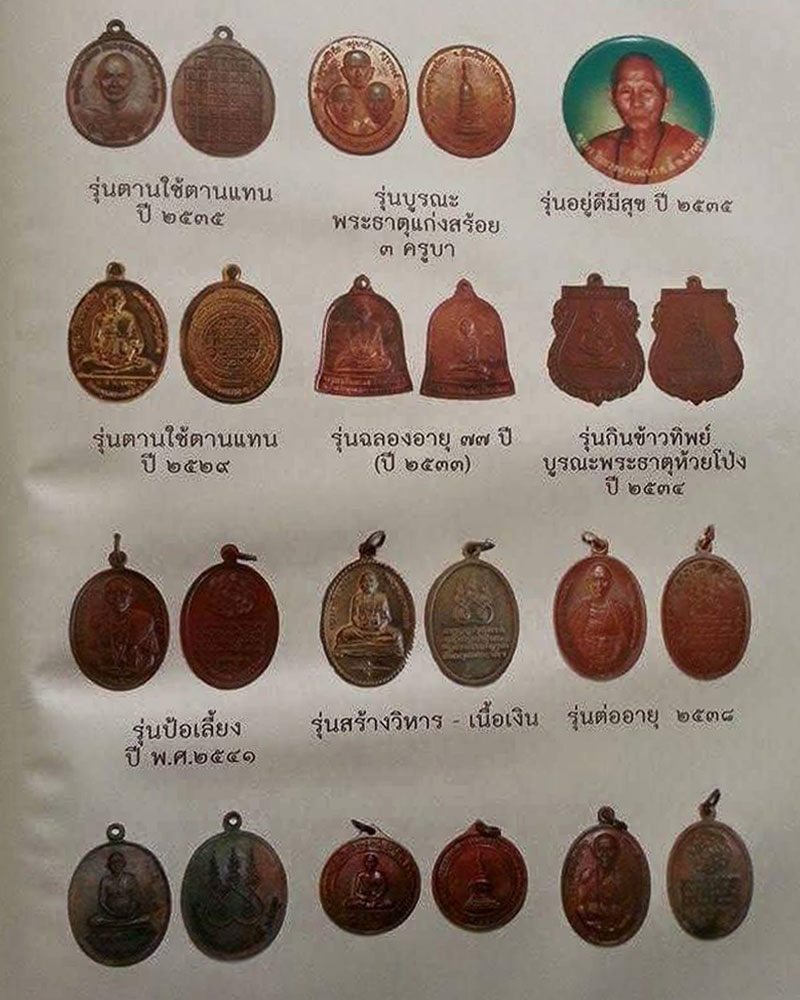 รุ่นตานใช้ตานแทน
ปี ๒๕๓๕
รุ่นบูรณะ
พระธาตุแก่งสร้อย
๓ ครูบา
รุ่นอยู่ดีมีสุข ปี ๒๕๓๕
รุ่นตานใช้ตานแทน
ปี ๒๕๒๙
รุ่นฉลองอายุ ๗๗ ปี
(ปี ๒๕๓๓)
รุ่นกินข้าวทิพย์
บูรณะพระธาตุห้วยโป่ง
ปี ๒๕๓๔
รุ่นป้อเลี้ยง
ปี พ.ศ.๒๕๔๑
รุ่นสร้างวิหาร - เนื้อเงิน
รุ่นต่ออายุ ๒๕๓๘